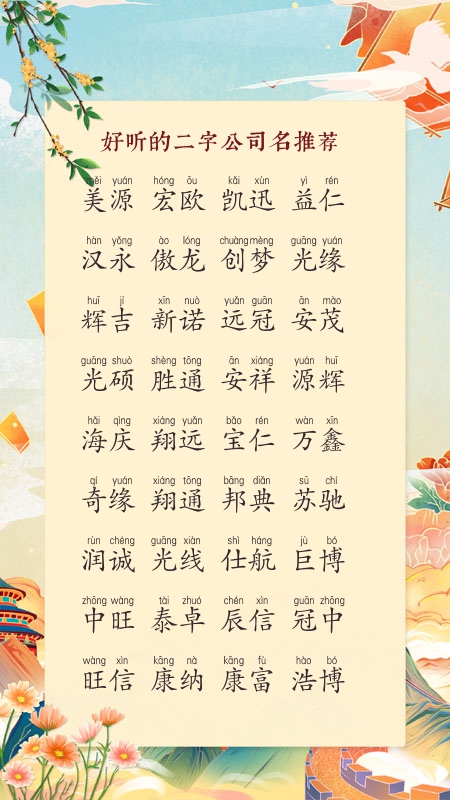 好听的二字公司名推荐
měi yuán hóng ōu kǎi xùn yì rén
美源 宏欧 凯迅 益仁
hàn yǒng ào lóng chuàng mèng guāng yuán
汉永 傲龙 创梦 光缘
huī jí xīn nuò yuǎn guān ān mào
辉吉 新诺 远冠 安茂
guāng shuò shèng tōng ān xiáng yuán huī
光硕 胜通 安祥 源辉
hǎi qìng xiáng yuǎn bǎo rén wàn xīn
海庆 翔远 宝仁 万鑫
qí yuán xiáng tōng bāng diǎn sū chí
奇缘 翔通 邦典 苏驰
rùn chéng guāng xiàn shì háng jù bó
润诚 光线 仕航 巨博
zhōng wàng tài zhuó chén xìn guān zhōng
中旺 泰卓 辰信 冠中
wàng xìn kāng nà kāng fù hào bó
旺信 康纳 康富 浩博